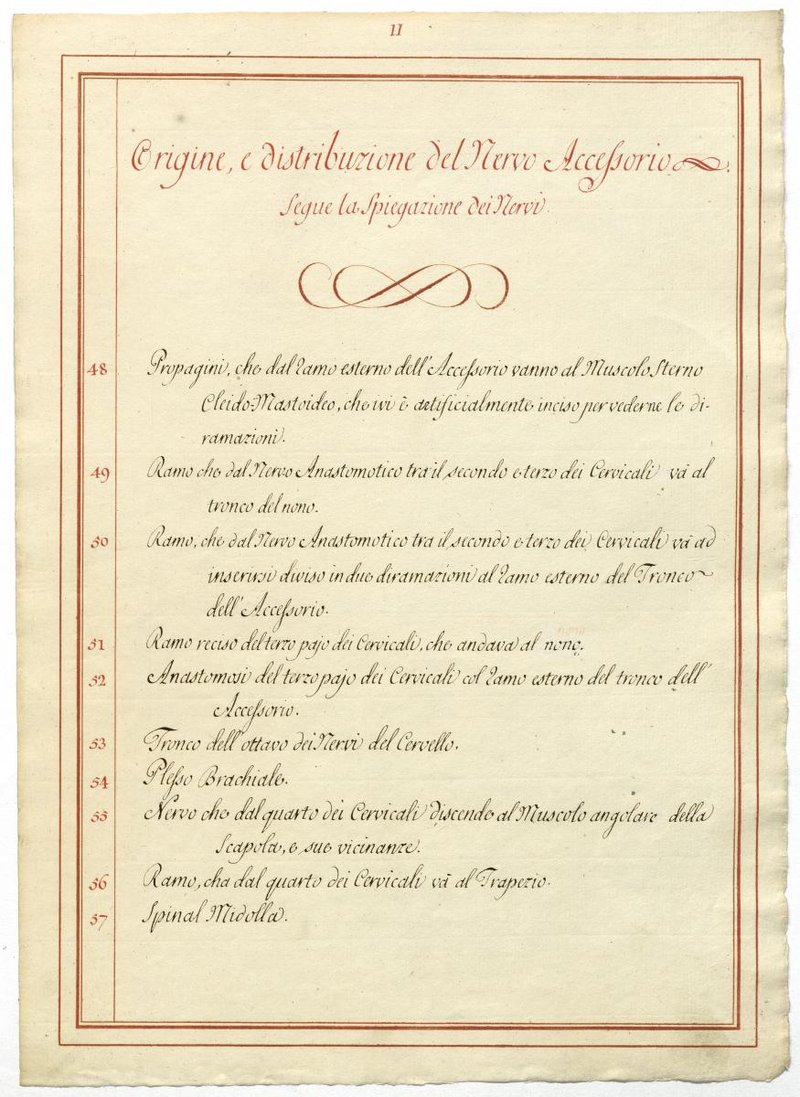 11
Origine, e distribuzione del Nervo Accessorio.
Segue la Spiegazione dei Nervi.
48 Propagini, che dal Ramo esterno dell'Accessorio vanno al Muscolo Sterno
Cleido-Mastoideo, che ivi è artificialmente inciso per vederne le di-
ramazioni.
49 Ramo che dal Nervo Anastomotico tra il secondo e terzo dei Cervicali và al
tronco del nono.
50 Ramo, che dal Nervo Anastomotico tra il secondo e terzo dei Cervicali và ad
inserirsi diviso in due diramazioni al Ramo esterno del Tronco
dell'Accessorio.
51 Ramo reciso del terzo pajo dei Cervicali, che andava al nono.
52 Anastomosi del terzo pajo dei Cervicali col Ramo esterno del tronco dell'
Accessorio.
53 Tronco dell'ottavo dei Nervi del Cervello.
54 Plesso Brachiale.
55 Nervo che dal quarto dei Cervicali discende al Muscolo angolare della
Scapola, e sue vicinanze.
56 Ramo, cha dal quarto dei Cervicali và al Trapezio.
57 Spinal Midolla.